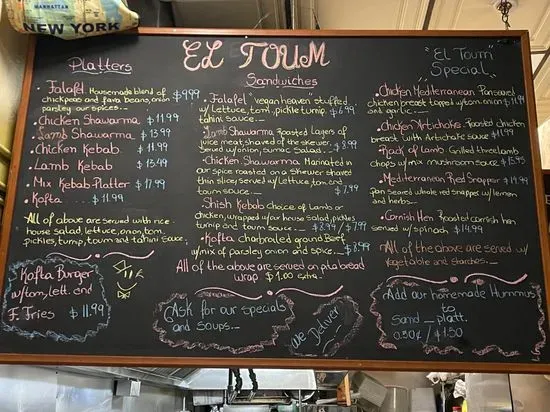 MANHATTAN
NEW YORK
EL TOUM
Platters
• Falafel Housemade blend of $9.99
chickpeas and fava beans, onion
parsley our spices...
• Chicken Shawarma $11.99
• Lamb Shawarma $13.99
• Chicken Kebab $11.99
• Lamb Kebab $13.99
• Mix Kebab Platter $17.99
• Kofta .... $11.99
All of above are served with rice
house salad, lettuce, onion, tom,
pickles, turnip, toum and tahini Sauce.
Kofta Burger
w/tom, lett. and
F. Fries $11.99
Sandwiches
• Falafel "vegan heaven" stuffed
w/ lettuce, tom, pickle turnip $6.99
tahini sauce...
• Lamb Shawarma Roasted Layers of
juice meat, shaved of the skewer,
Served w/onion, sumac Salad... $8.99
• Chicken Shawarma. Marinated in
our spice roasted on a skewer shaved
thin slice, served w/ Lettuce, tom and
toum sauce $7.99
Shish Kebab choice of Lamb or
chicken, wrapped w/our house Salad, pickles,
turnip and toum sauce... $8.99/$7.99
• Kofta charbroiled ground Beef
w/mix of parsley onion and spice... $8.99
All of the above are served on pita bread
wrap $1.00 extra.
Ask for our specials
and Soups...
We Deliver
"El Toum"
Special
• Chicken Mediterranean Panseared
chicken breast topped w/tom, onion $11.99
and garlic
• Chicken Artichoke Roasted chicken
breast with Artichoke sauce $11.99
• Rack of Lamb Grilled three lamb
chops w/mix mushroom sauce $15.95
• Mediterranean Red Snapper $14.99
Pan seared whole red snapper w/ lemon
and herbs...
• Cornish Hen Roasted cornish hen
served w/ spinach $14.99
All of the above are served w/
Vegetable and starches...
Add our homemade Hummus
to
Sand... platt.
0.50¢ / $1.50